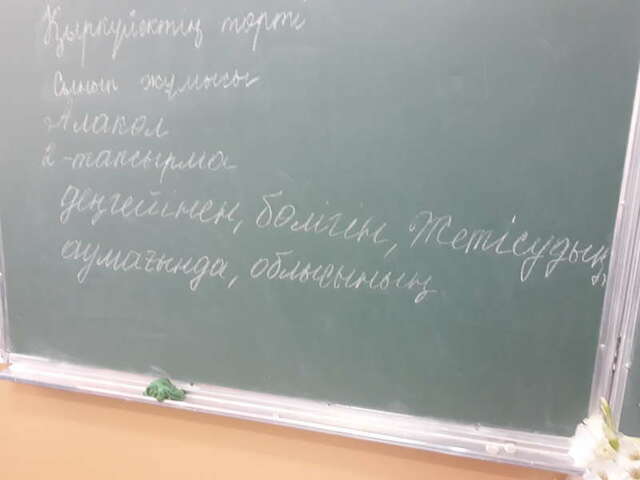 Қыркүйектің төрті
Сынып жұмысы
Алакөл
2-тапсырма
деңгейінен, бөлігін, Жетісудың
аумағында, облысының